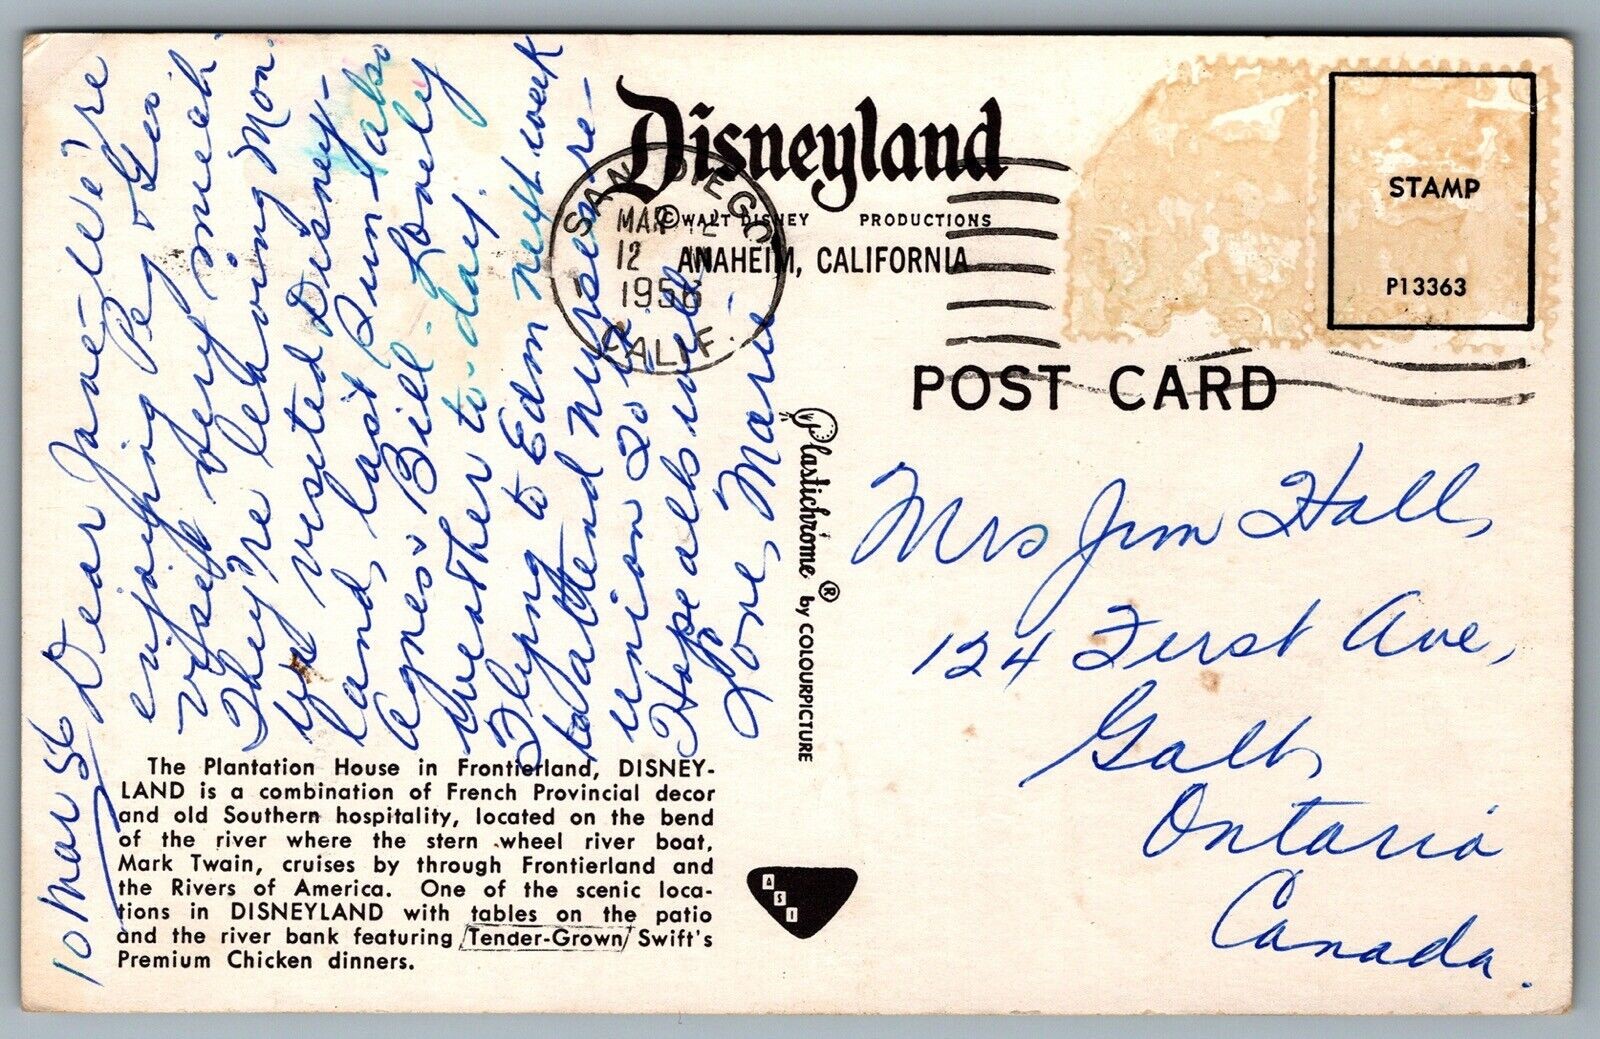 10 Mar 56
Dear Jane - We're
enjoying Peg & Les
visit very much.
They're leaving Mon.
We visited Disney-
land, last Sun. also
Agnes & Bill. Lovely
weather to-day.
Flying to Edm next week
to attend nurses re-
union 20
Hope all's well
Love, Marie -
The Plantation House in Frontierland, DISNEY-
LAND is a combination of French Provincial decor
and old Southern hospitality, located on the bend
of the river where the stern wheel river boat,
Mark Twain, cruises by through Frontierland and
the Rivers of America. One of the scenic loca-
tions in DISNEYLAND with tables on the patio
and the river bank featuring Tender-Grown Swift's
Premium Chicken dinners.
Disneyland
© WALT DISNEY PRODUCTIONS
ANAHEIM, CALIFORNIA
SAN DIEGO
MAR 12
12 M
1956
CALIF.
STAMP
P13363
POST CARD
Plastichrome ® by COLOURPICTURE
ASI
Mrs Jim Hall,
124 First Ave,
Galt,
Ontario
Canada.